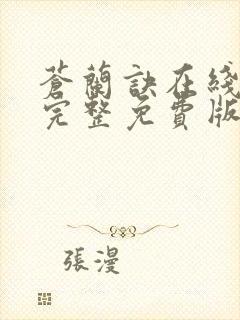 蒼蘭訣在綫
完整免費版
張漫